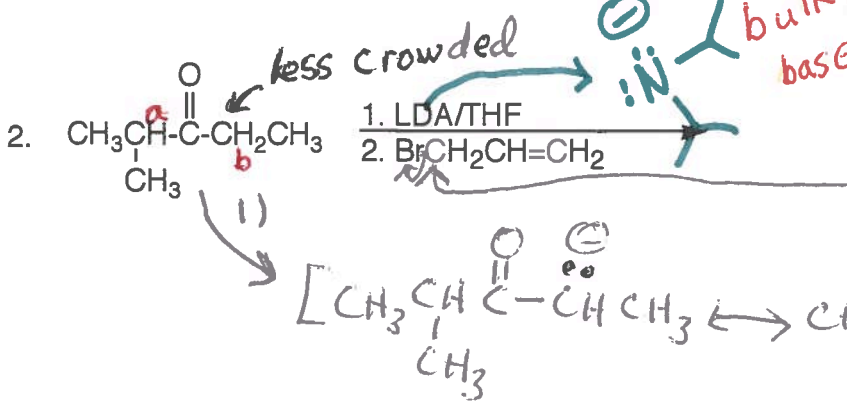 ⊖
less crowded
:N̈
O
a
2. CH₃CH-C-CH₂CH₃
b
CH₃
1. LDA/THF
2. BrCH₂CH=CH₂
1)
O ⊖
[CH₃ CH C–C̈H CH₃ ↔
CH₃